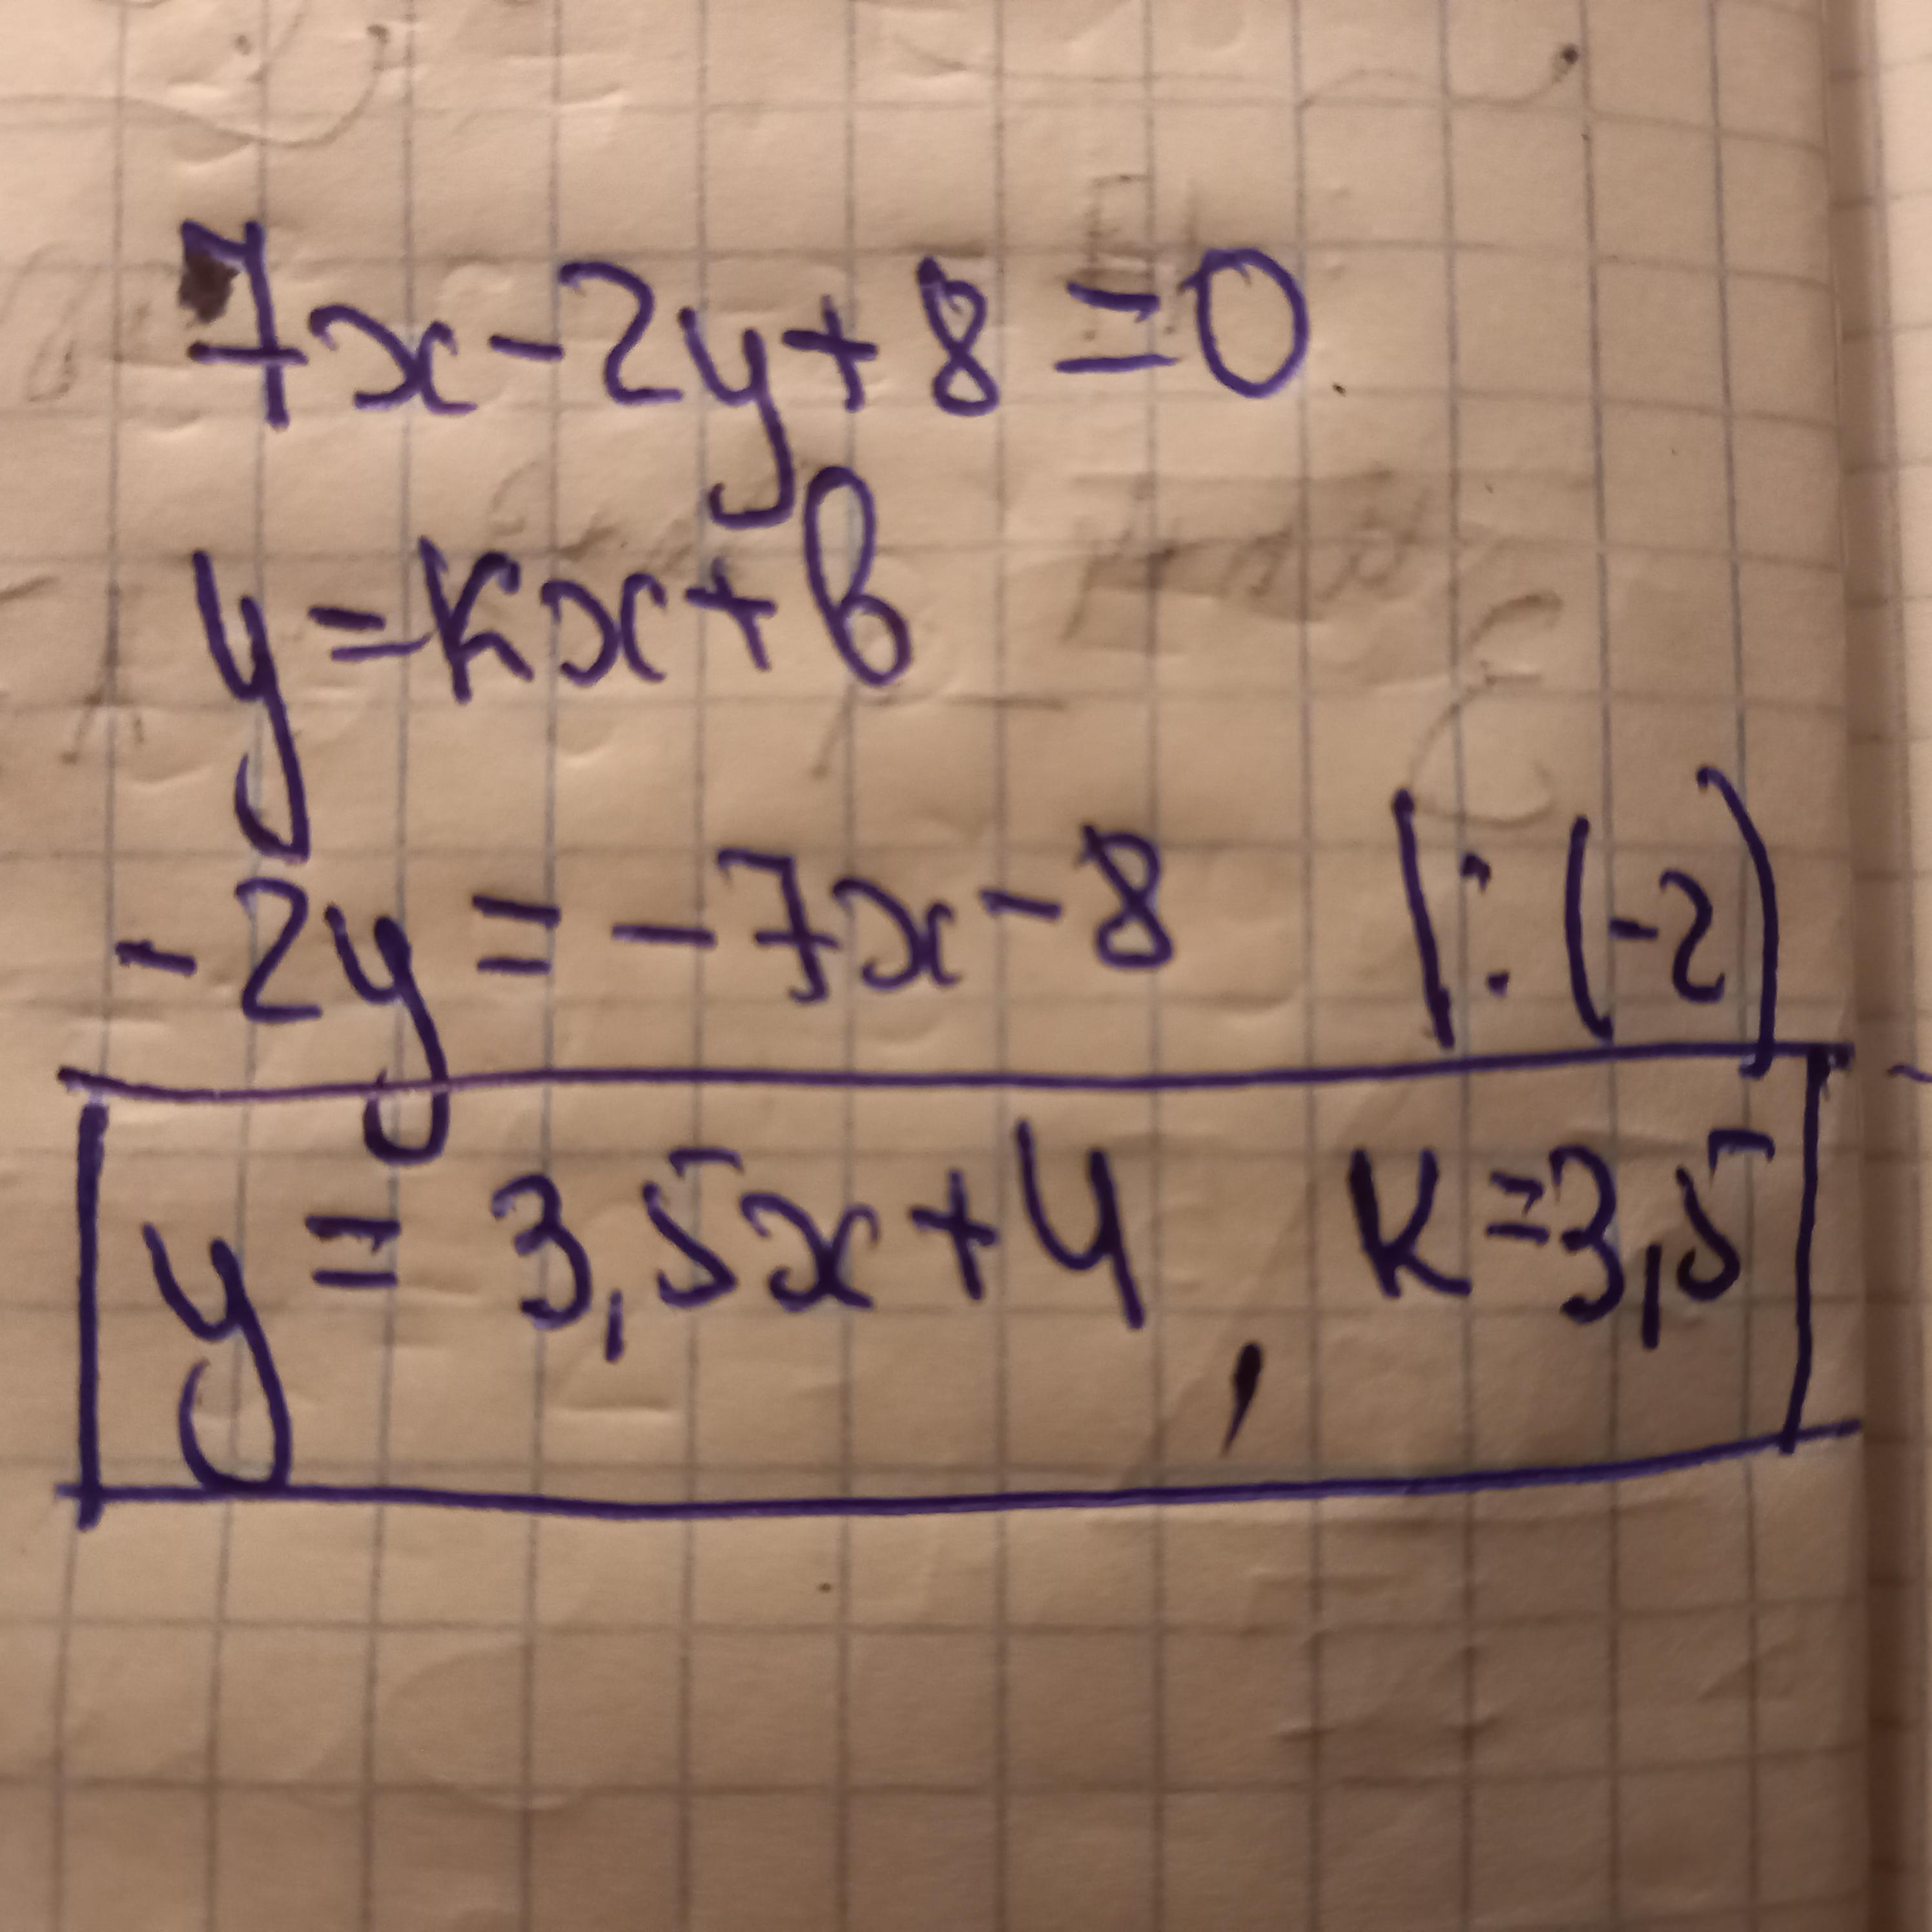 7x-2y+8=0
y=kx+b
-2y=-7x-8 |:(-2)
y=3,5x+4, k=3,5